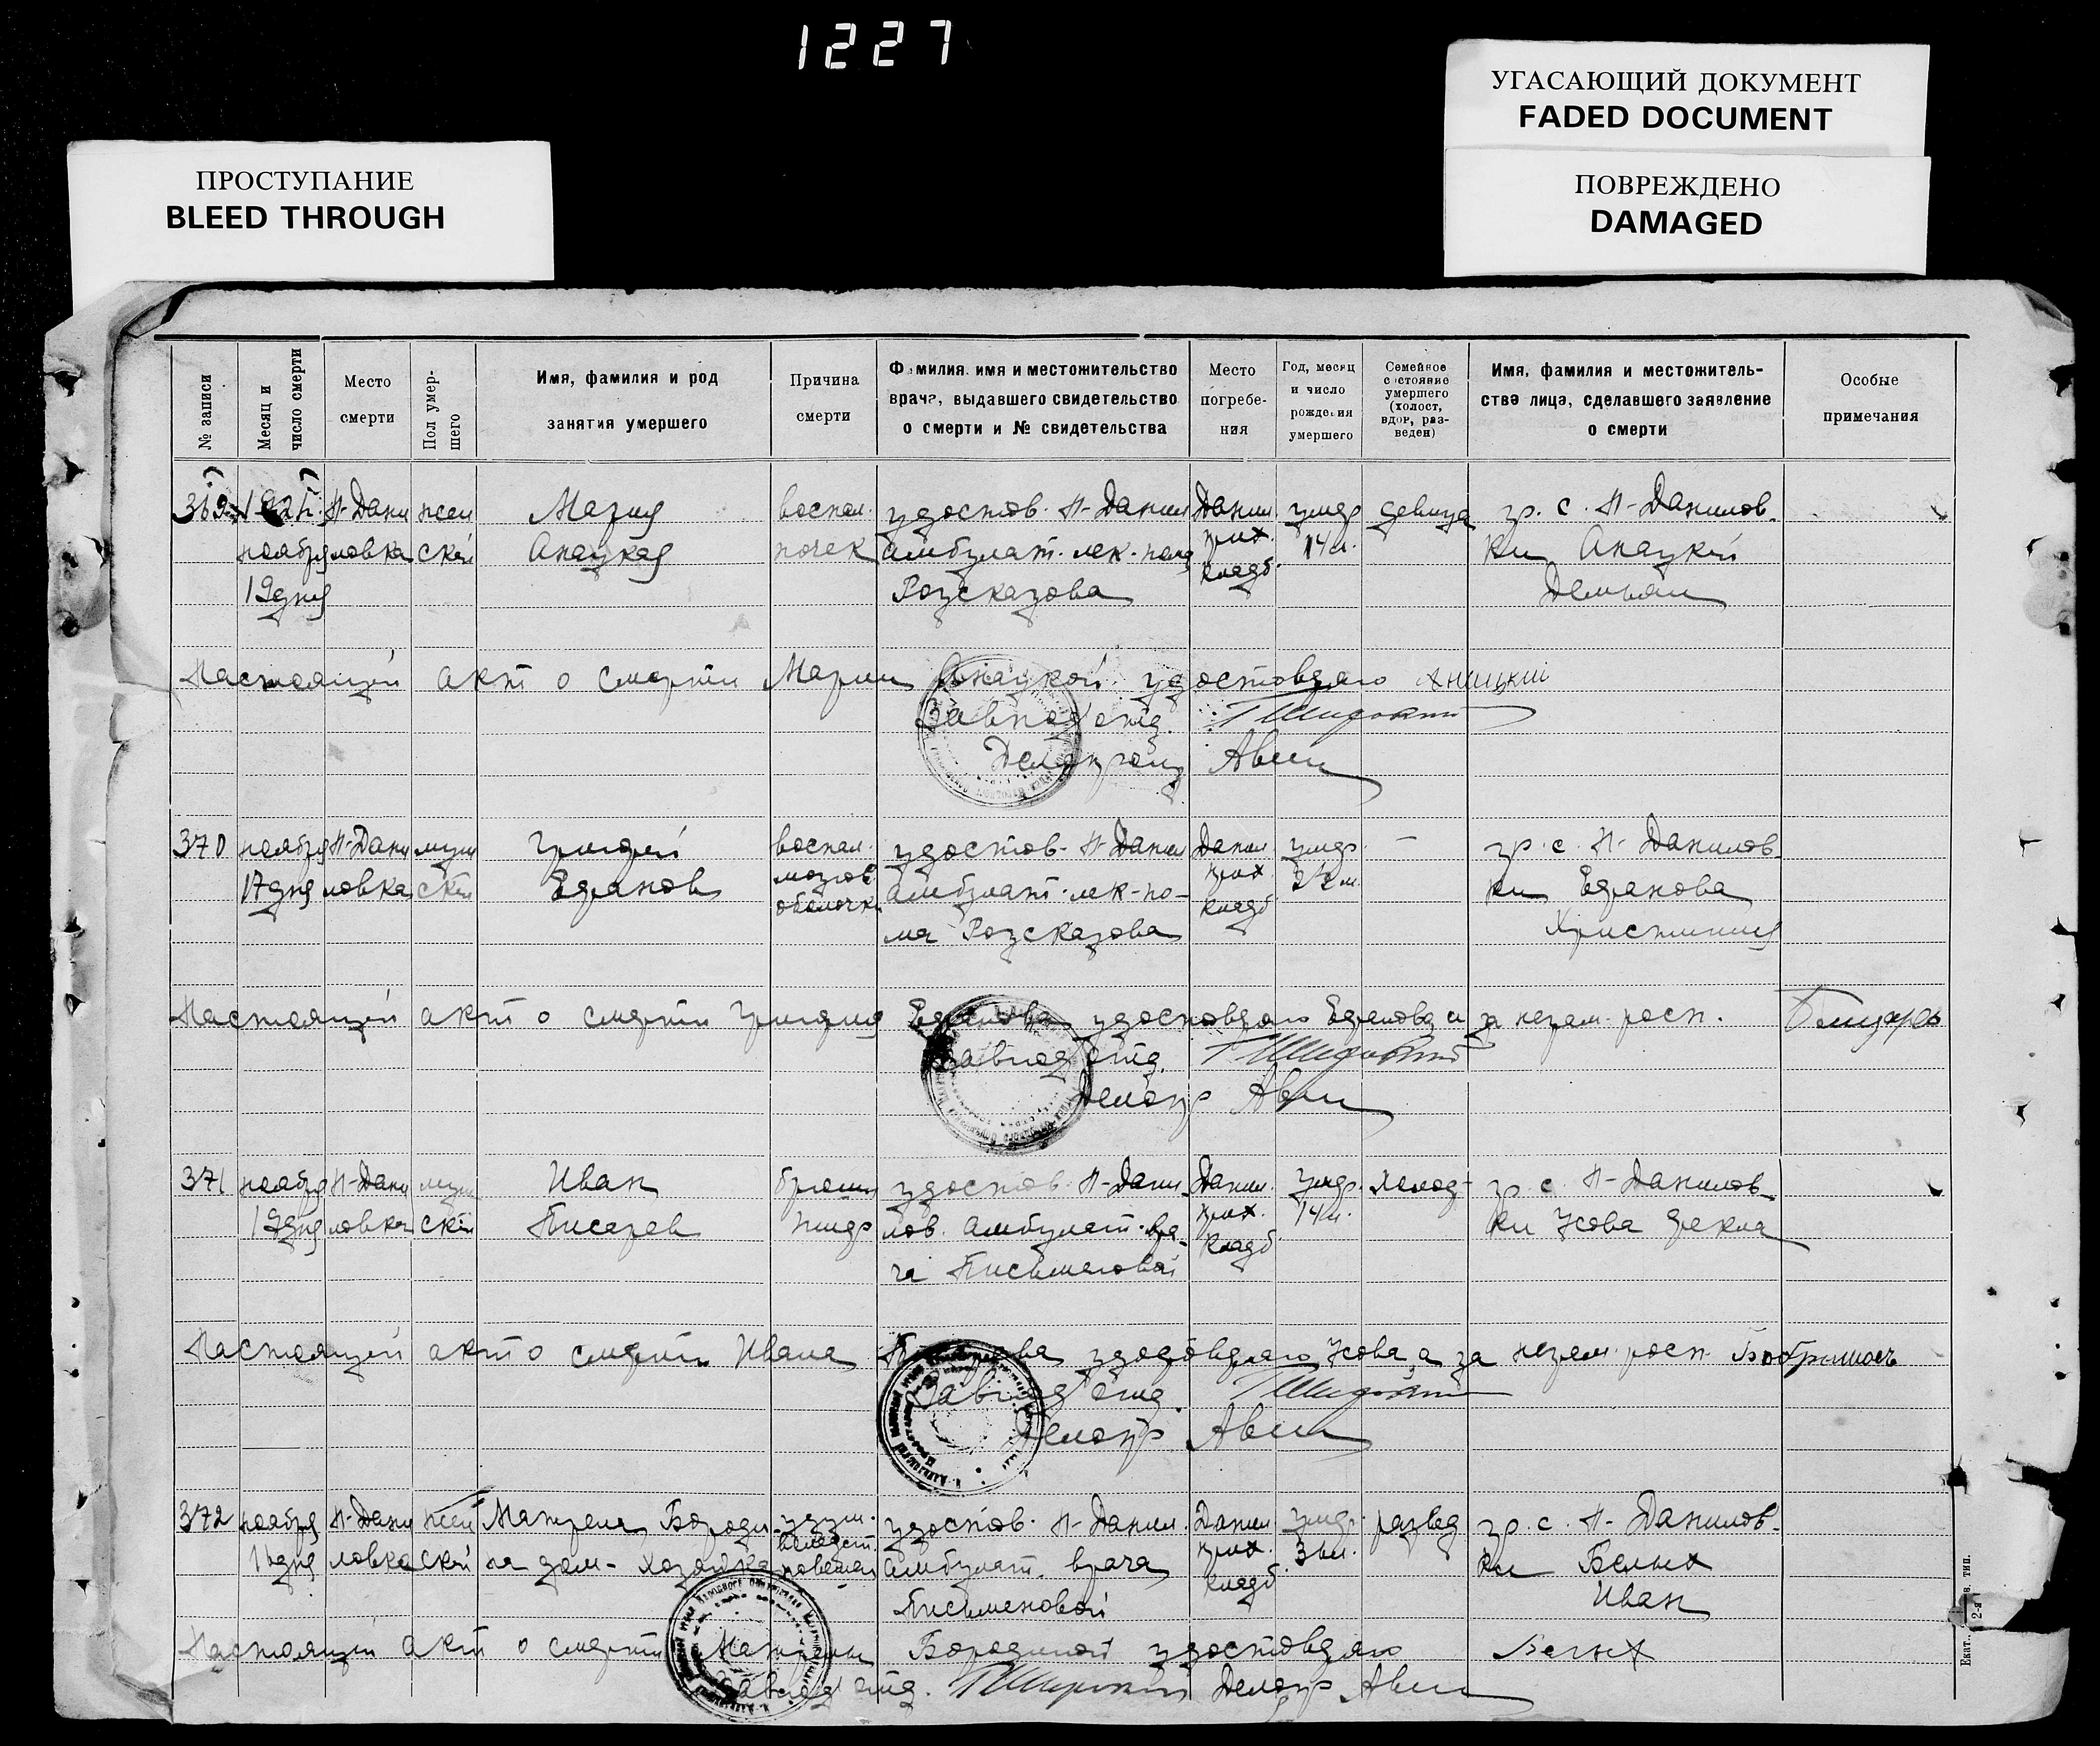 1227
УГАСАЮЩИЙ ДОКУМЕНТ
FADED DOCUMENT
ПОВРЕЖДЕНО
DAMAGED
ПРОСТУПАНИЕ
BLEED THROUGH
№ записи
Месяц и
число смерти
Место
смерти
Пол умер-
шего
Имя, фамилия и род
занятия умершего
Причина
смерти
Фамилия, имя и местожительство
врача, выдавшего свидетельство
о смерти и № свидетельства
Место
погребе-
ния
Год, месяц
и число
рождения
умершего
Семейное
состояние
умершего
(холост,
вдов, раз-
веден)
Имя, фамилия и местожитель-
ства лица, сделавшего заявление
о смерти
Особые
примечания
369
ноября
19 дня
Н-Дани
ловка
жен
ской
Мария
воспал.
почек
удостов. Н-Данил
амбулат. лек. пома
Розсказова
Данил.
прих.
кладб.
умер
14 л.
девица
гр. с. Н-Данилов
ки
Демьян
Настоящий акт о смерти Марии удостоверяю
Завподотд.
Авин
370
ноября
17 дня
Н-Дани
ловка
муж
ской
Григорий
Ефанов
воспал.
мозгов.
оболочки
удостов. Н-Данил
амбулат. лек-по-
ма Розсказова
Данил.
прих.
кладб.
умер.
—
гр. с. Н-Данилов
ки Ефанова
Христиния
Настоящий акт о смерти Григория Ефанова удостоверяю Ефанова а за неграм. росп.
Завподотд.
Делопр Авин
371
ноября
19 дня
Н-Дани
ловка
муж
ской
Иван
Писарев
брюшн
тиф
удостов. Н-Дани
лов. амбулат. вра-
ча Письменовой
Данил.
прих.
кладб
умер.
14 л.
холост
гр. с. Н-Данилов
ки Усова Фекла
Настоящий акт о смерти Ивана Писарева удостоверяю Усова, а за неграм. росп.
Завподотд.
Делопр Авин
372
ноября
Н-Дани
ловка
жен
ской
Матрена Бороди
на дом-хозяйка
удостов. Н-Данил.
амбулат. врача
Письменовой
Данил.
прих.
кладб.
умер.
развед
гр. с. Н-Данилов
ки Белых
Иван
Настоящий акт о смерти Матрены Бородиной удостоверяю Белых
Завподотд. Делопр Авин